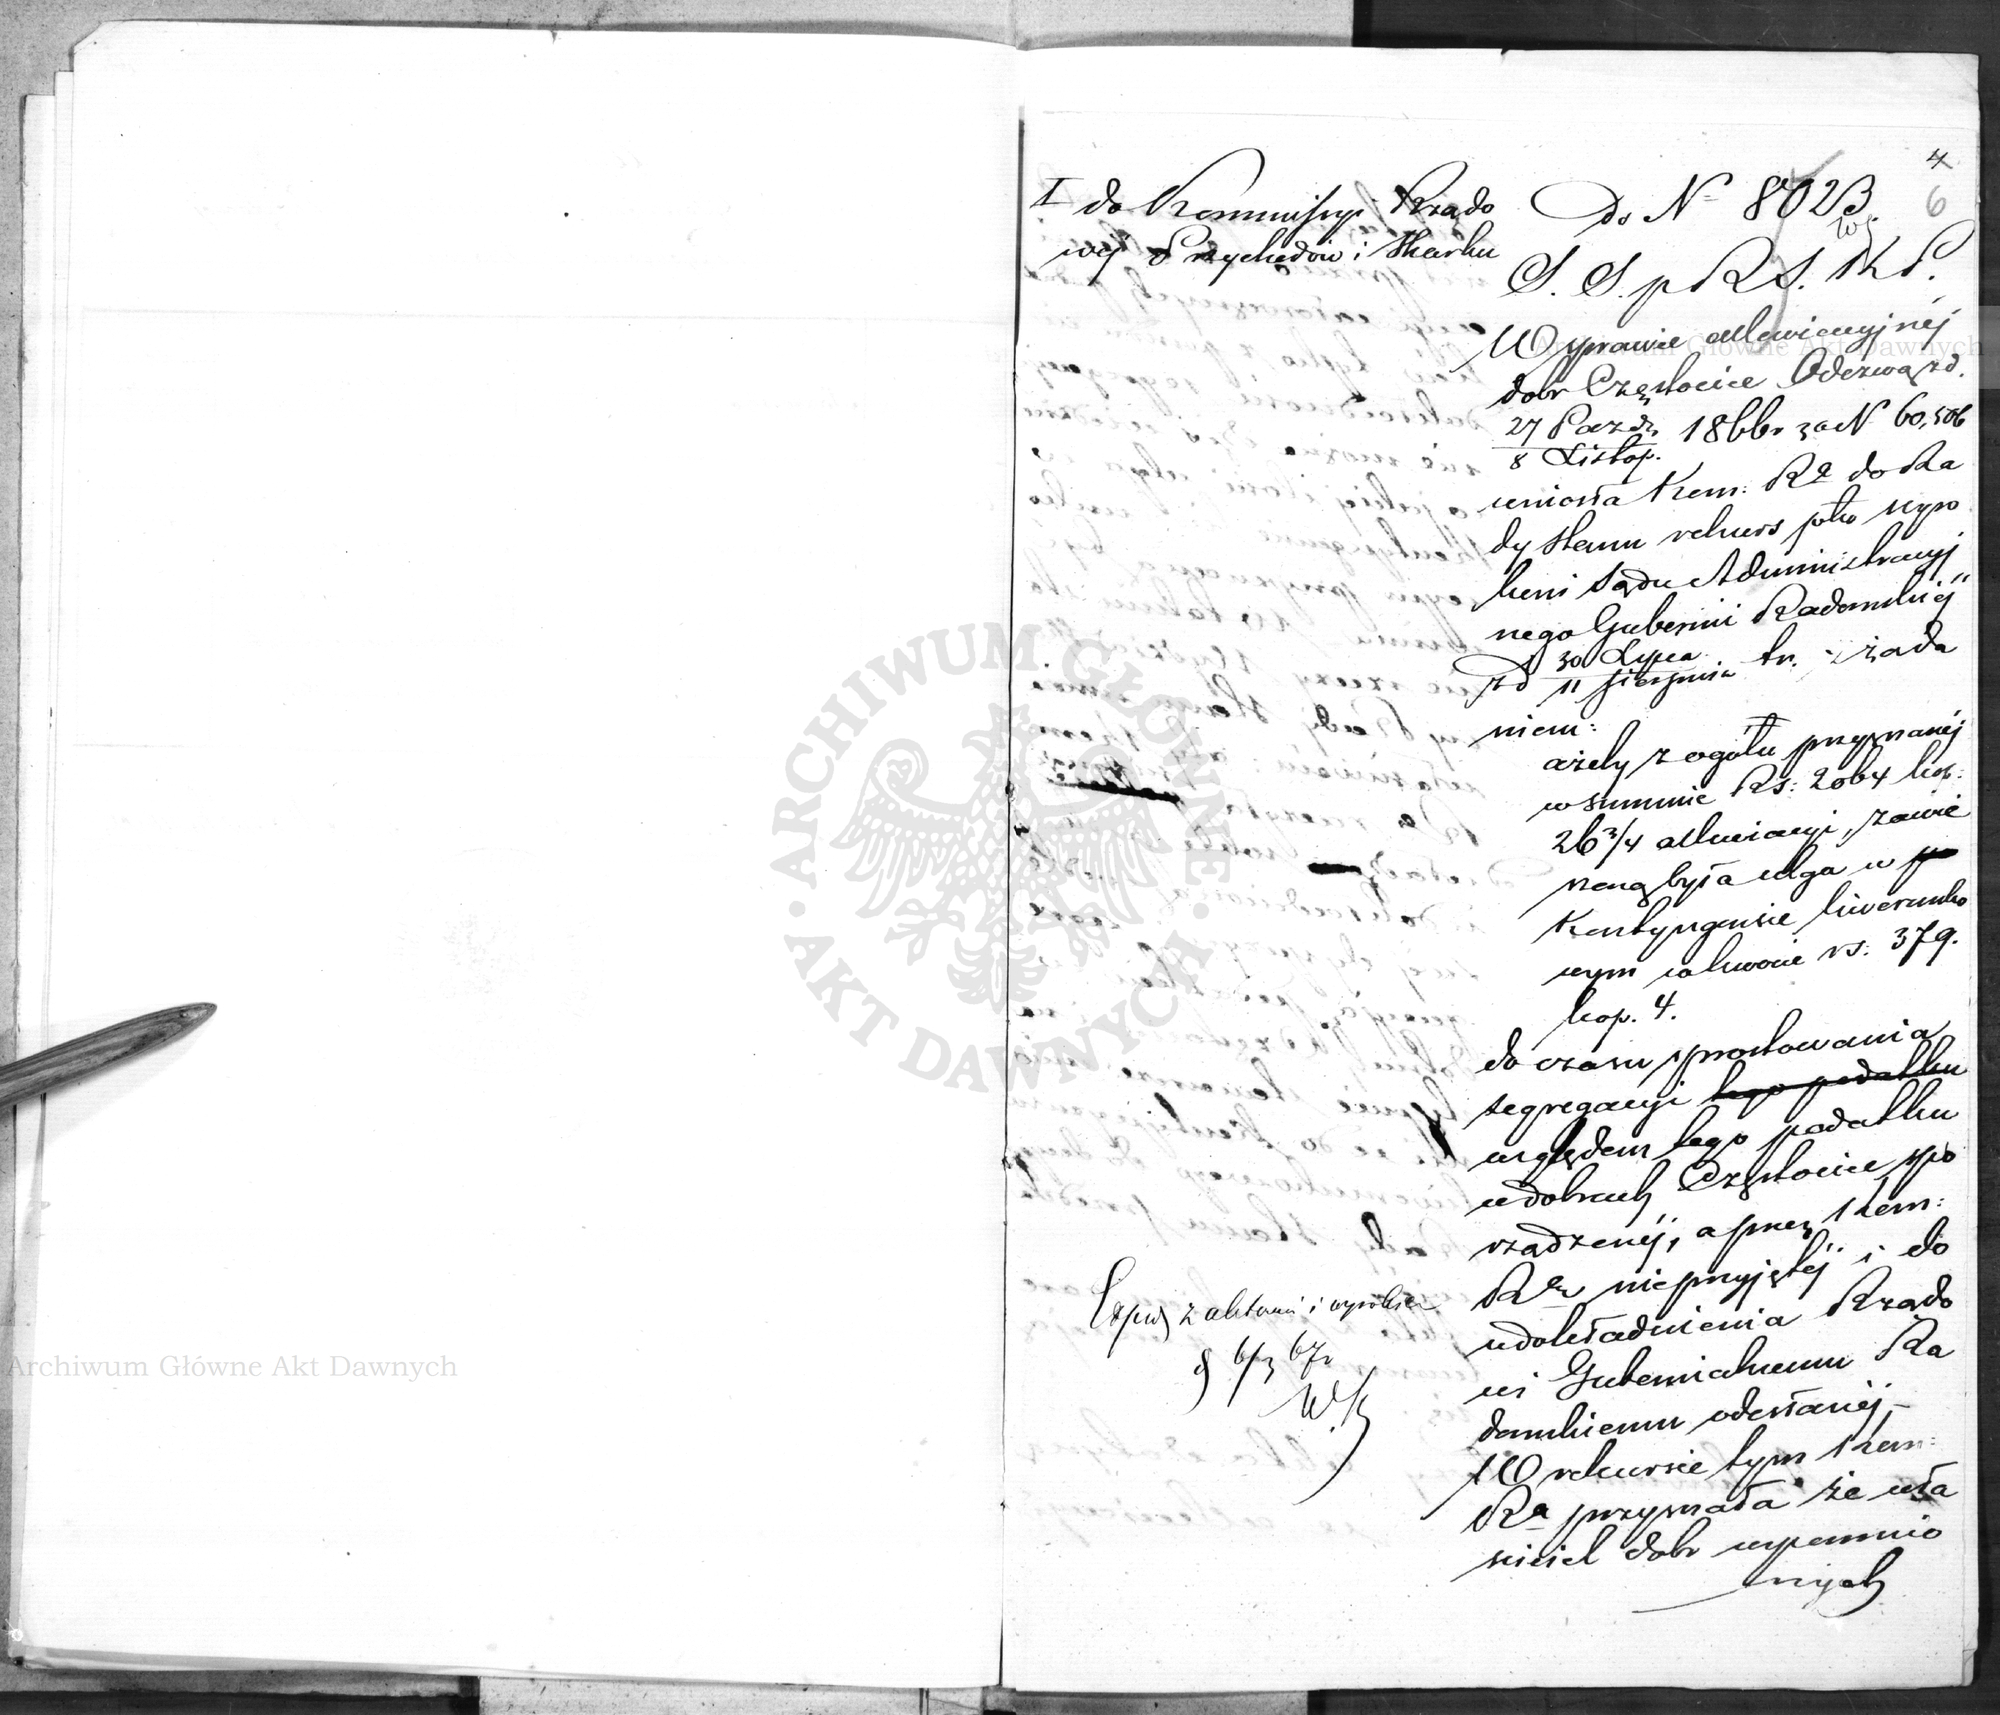 4
6
I do Kommissyi Rządo
wej Przychodów i Skarbu
Do N 8023.
S. S. p R S. K P.
W sprawie alluwicyjnéj
dobr Częstocice Odezwą z d.
27 Paźdz. / 8 Listop. 1866 r za N 60,506
wniosła Kom: Rª do Ra
dy Stanu rekurs pko wyro
kowi Sądu Administracyj
nego Gubernii Radomskiéj
z d 30 Lipca / 11 Sierpnia t r. z żąda
niem:
ażeby z ogółu przyznanéj
w summie Rs: 2064 kop:
26 3/4 alluwiacyi, zawie
szoną była ulga w po
Kontyngensie liwerunko
wym w kwocie rs: 379.
kop. 4.
do czasu sprostowania
segregacyi tego podatku
względem tego podatku
w dobrach Częstocice, spo
rządzonéj, a przez Kom:
Rą nieprzyjętéj i do
udokładnienia Rządo
wi Gubernialnemu Ra
domskiemu odesłanéj,—
W rekursie tym Kom:
Rª przyznała że wła
ściciel dobr wspomnio
nych
z aktami i wyrokiem
67 r
Archiwum Główne Akt Dawnych
ARCHIWUM GŁÓWNE
AKT DAWNYCH
Archiwum Główne Akt Dawnych